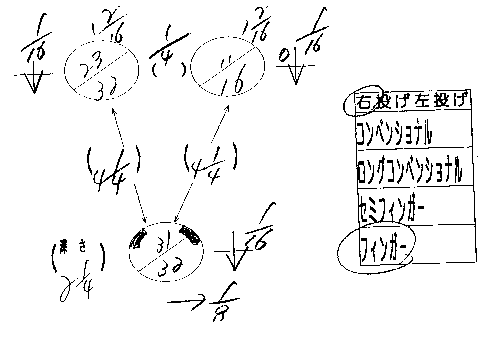 1/16
12/16
23/32
1/4
( )
11/16
12/16
0
1/16
(4 1/4)
(4 1/4)
31/32
1/16
1/8
(深さ
2 1/4)
右投げ左投げ
コンベンショナル
ロングコンベンショナル
セミフィンガー
フィンガー